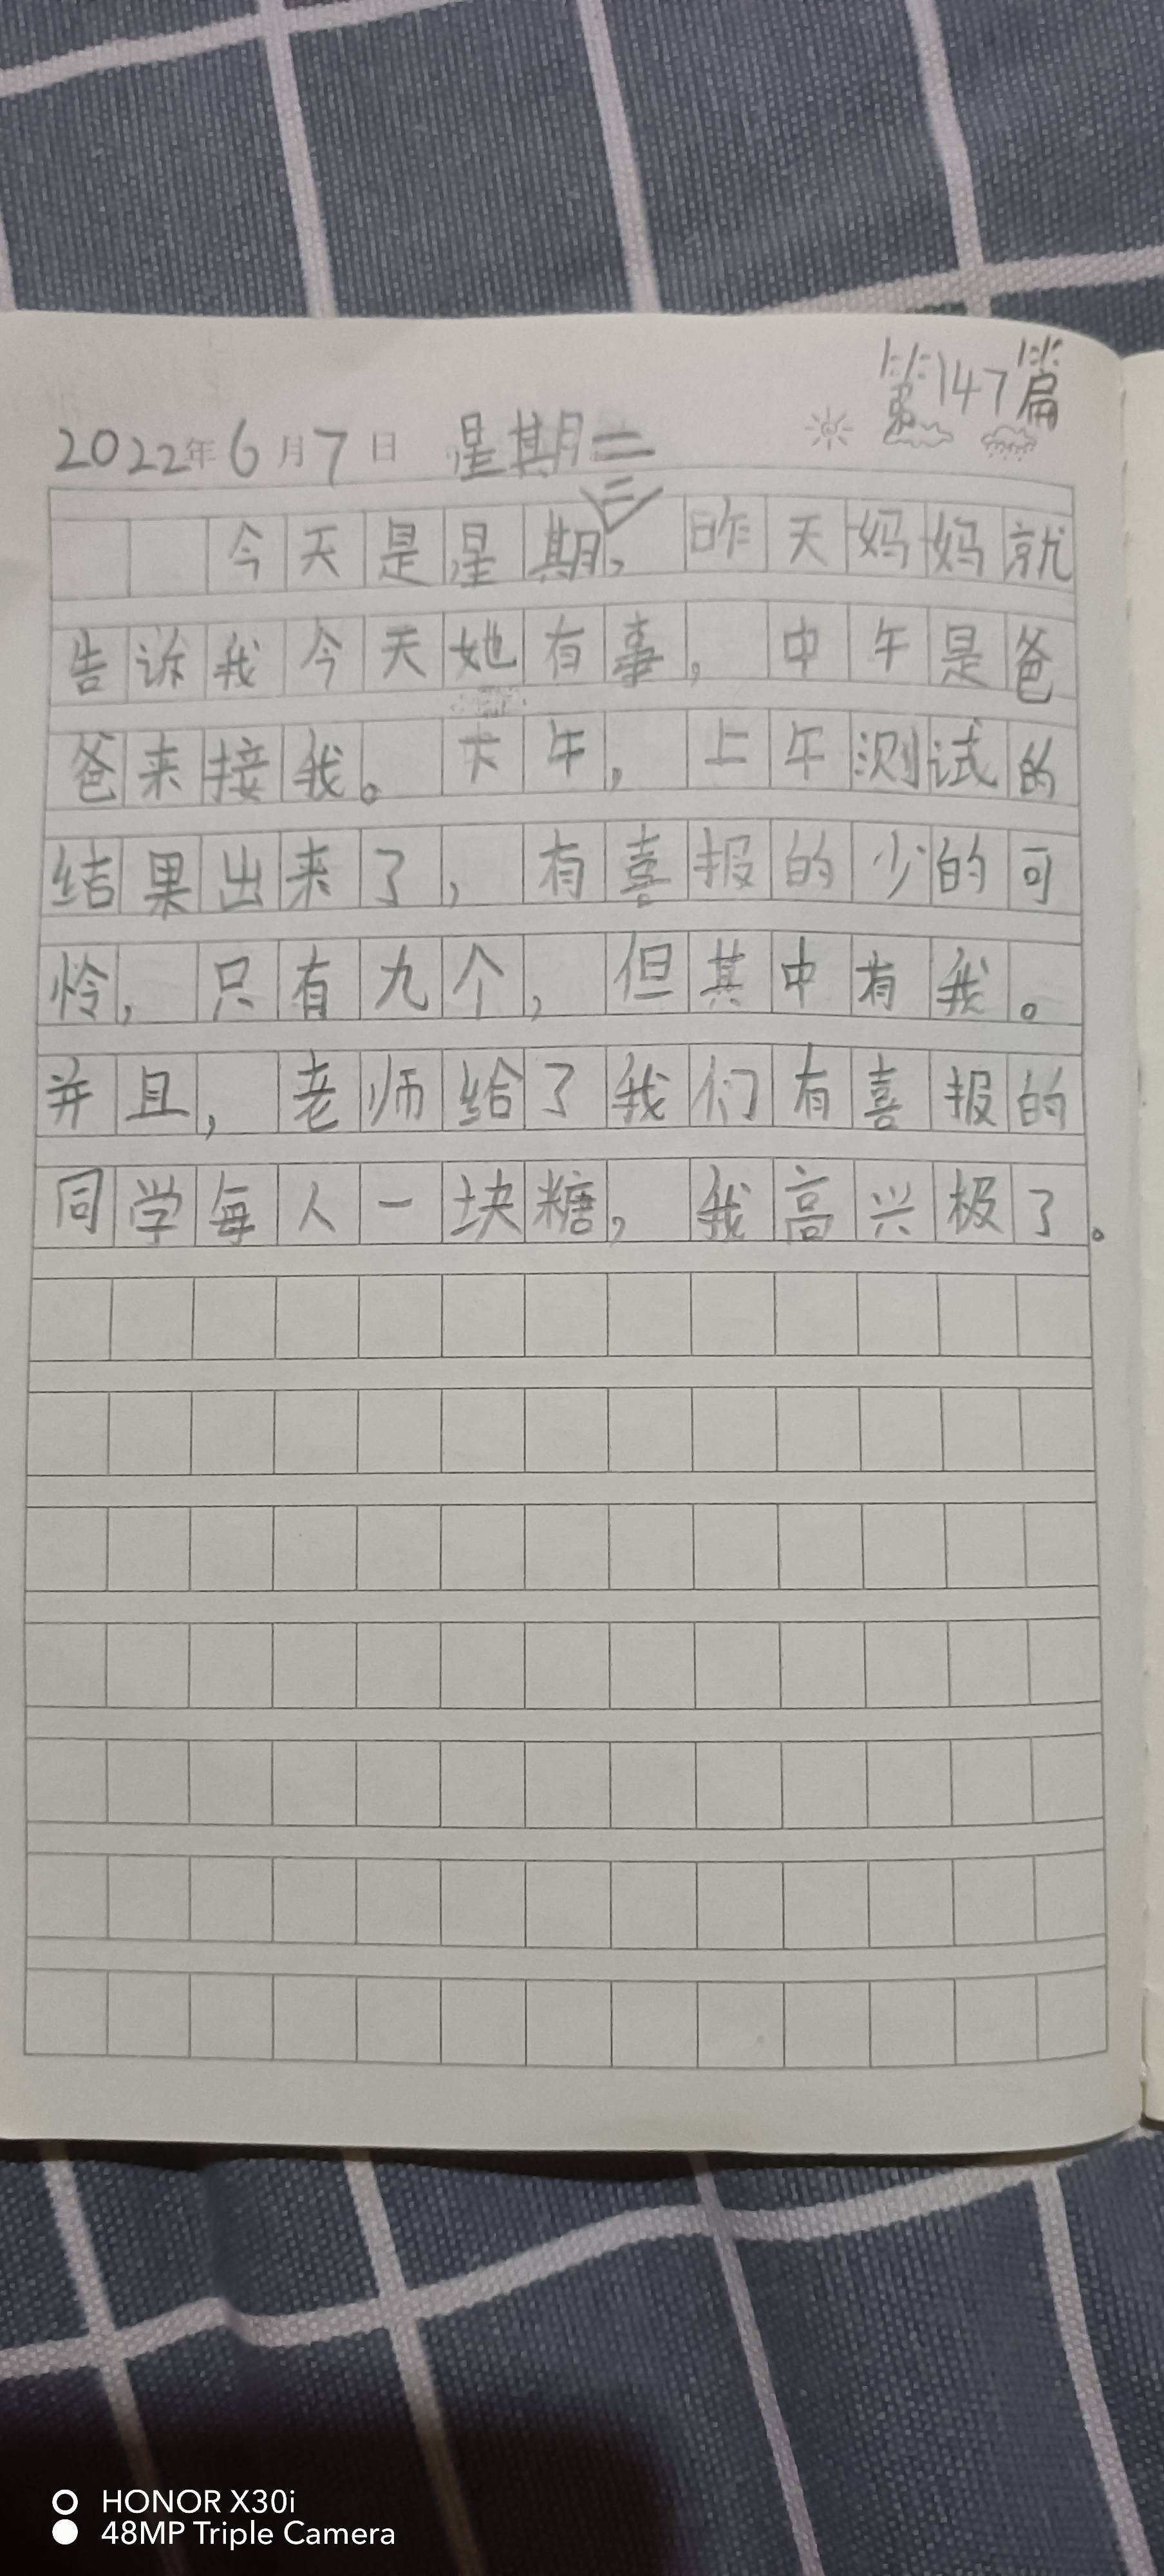 第147篇
2022年6月7日 星期二
今天是星期二，昨天妈妈就
告诉我今天她有事，中午是爸
爸来接我。下午，上午测试的
结果出来了，有喜报的少的可
怜，只有九个，但其中有我。
并且，老师给了我们有喜报的
同学每人一块糖，我高兴极了。
HONOR X30i
48MP Triple Camera